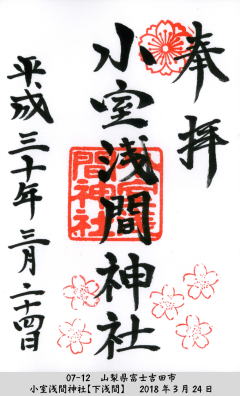 奉拝
小室浅間神社
平成三十年 三月二十四日
07-12 山梨県富士吉田市
小室浅間神社【下浅間】 2018年3月24日